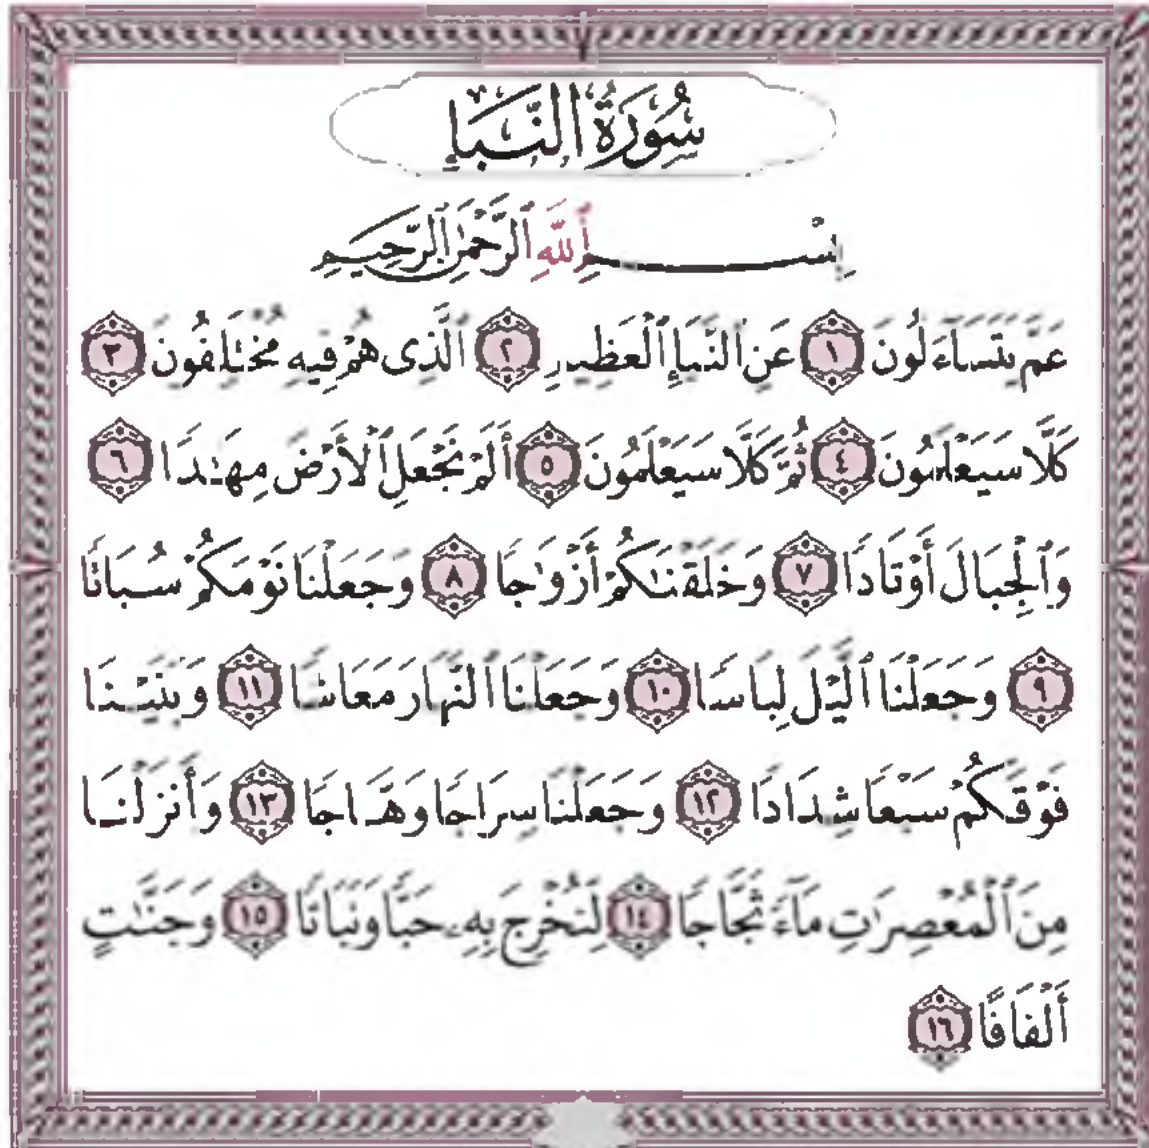 سُورَةُ النَّبَإِ
بِسْمِ ٱللَّهِ ٱلرَّحْمَٰنِ ٱلرَّحِيمِ
عَمَّ يَتَسَآءَلُونَ ١ عَنِ ٱلنَّبَإِ ٱلْعَظِيمِ ٢ ٱلَّذِى هُمْ فِيهِ مُخْتَلِفُونَ ٣
كَلَّا سَيَعْلَمُونَ ٤ ثُمَّ كَلَّا سَيَعْلَمُونَ ٥ أَلَمْ نَجْعَلِ ٱلْأَرْضَ مِهَٰدًا ٦
وَٱلْجِبَالَ أَوْتَادًا ٧ وَخَلَقْنَٰكُمْ أَزْوَٰجًا ٨ وَجَعَلْنَا نَوْمَكُمْ سُبَاتًا
٩ وَجَعَلْنَا ٱلَّيْلَ لِبَاسًا ١٠ وَجَعَلْنَا ٱلنَّهَارَ مَعَاشًا ١١ وَبَنَيْنَا
فَوْقَكُمْ سَبْعًا شِدَادًا ١٢ وَجَعَلْنَا سِرَاجًا وَهَّاجًا ١٣ وَأَنزَلْنَا
مِنَ ٱلْمُعْصِرَٰتِ مَآءً ثَجَّاجًا ١٤ لِّنُخْرِجَ بِهِۦ حَبًّا وَنَبَاتًا ١٥ وَجَنَّٰتٍ
أَلْفَافًا ١٦